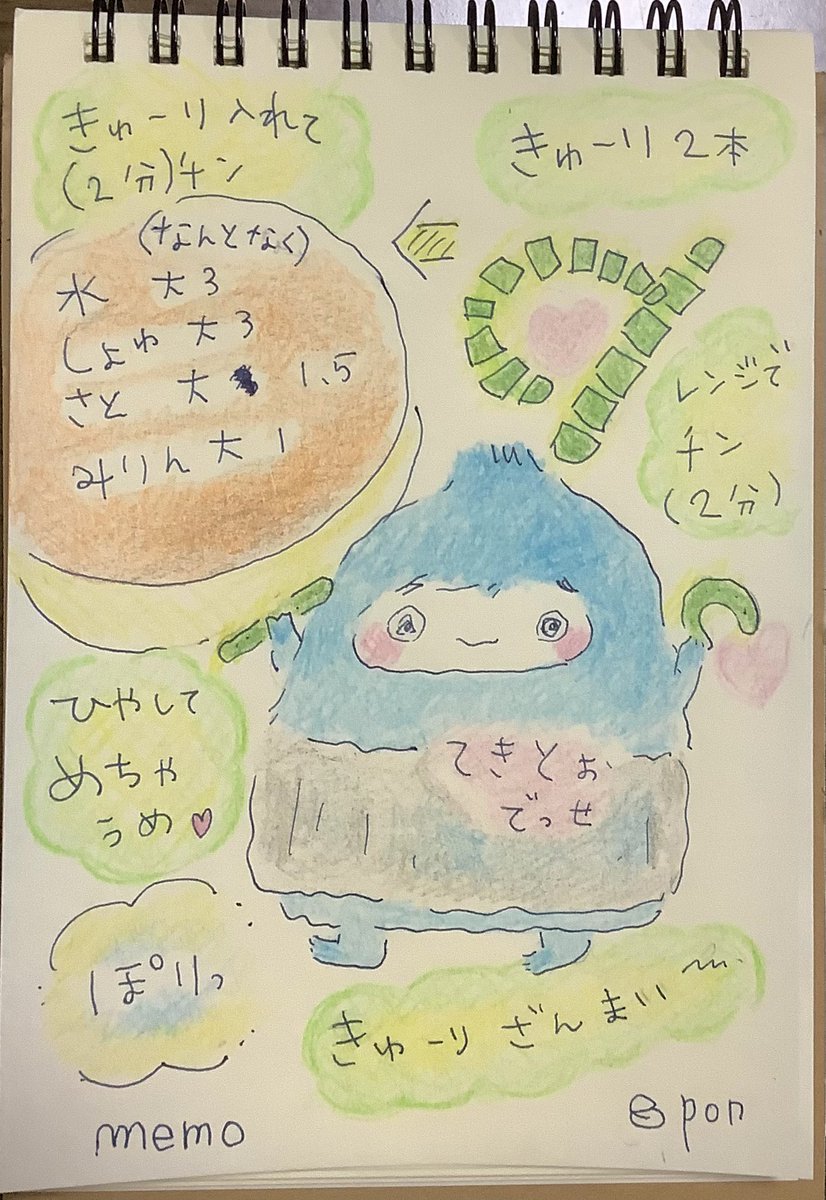 きゅーり2本
レンジで
チン
(2分)
きゅーり入れて
(2分)チン
(なんとなく)
水 大3
しょゆ 大3
さと 大 1.5
みりん 大1
ひやして
めちゃ
うめ♡
てきとぉ
でっせ
ぽりっ
きゅーりざんまい〜
memo
pon